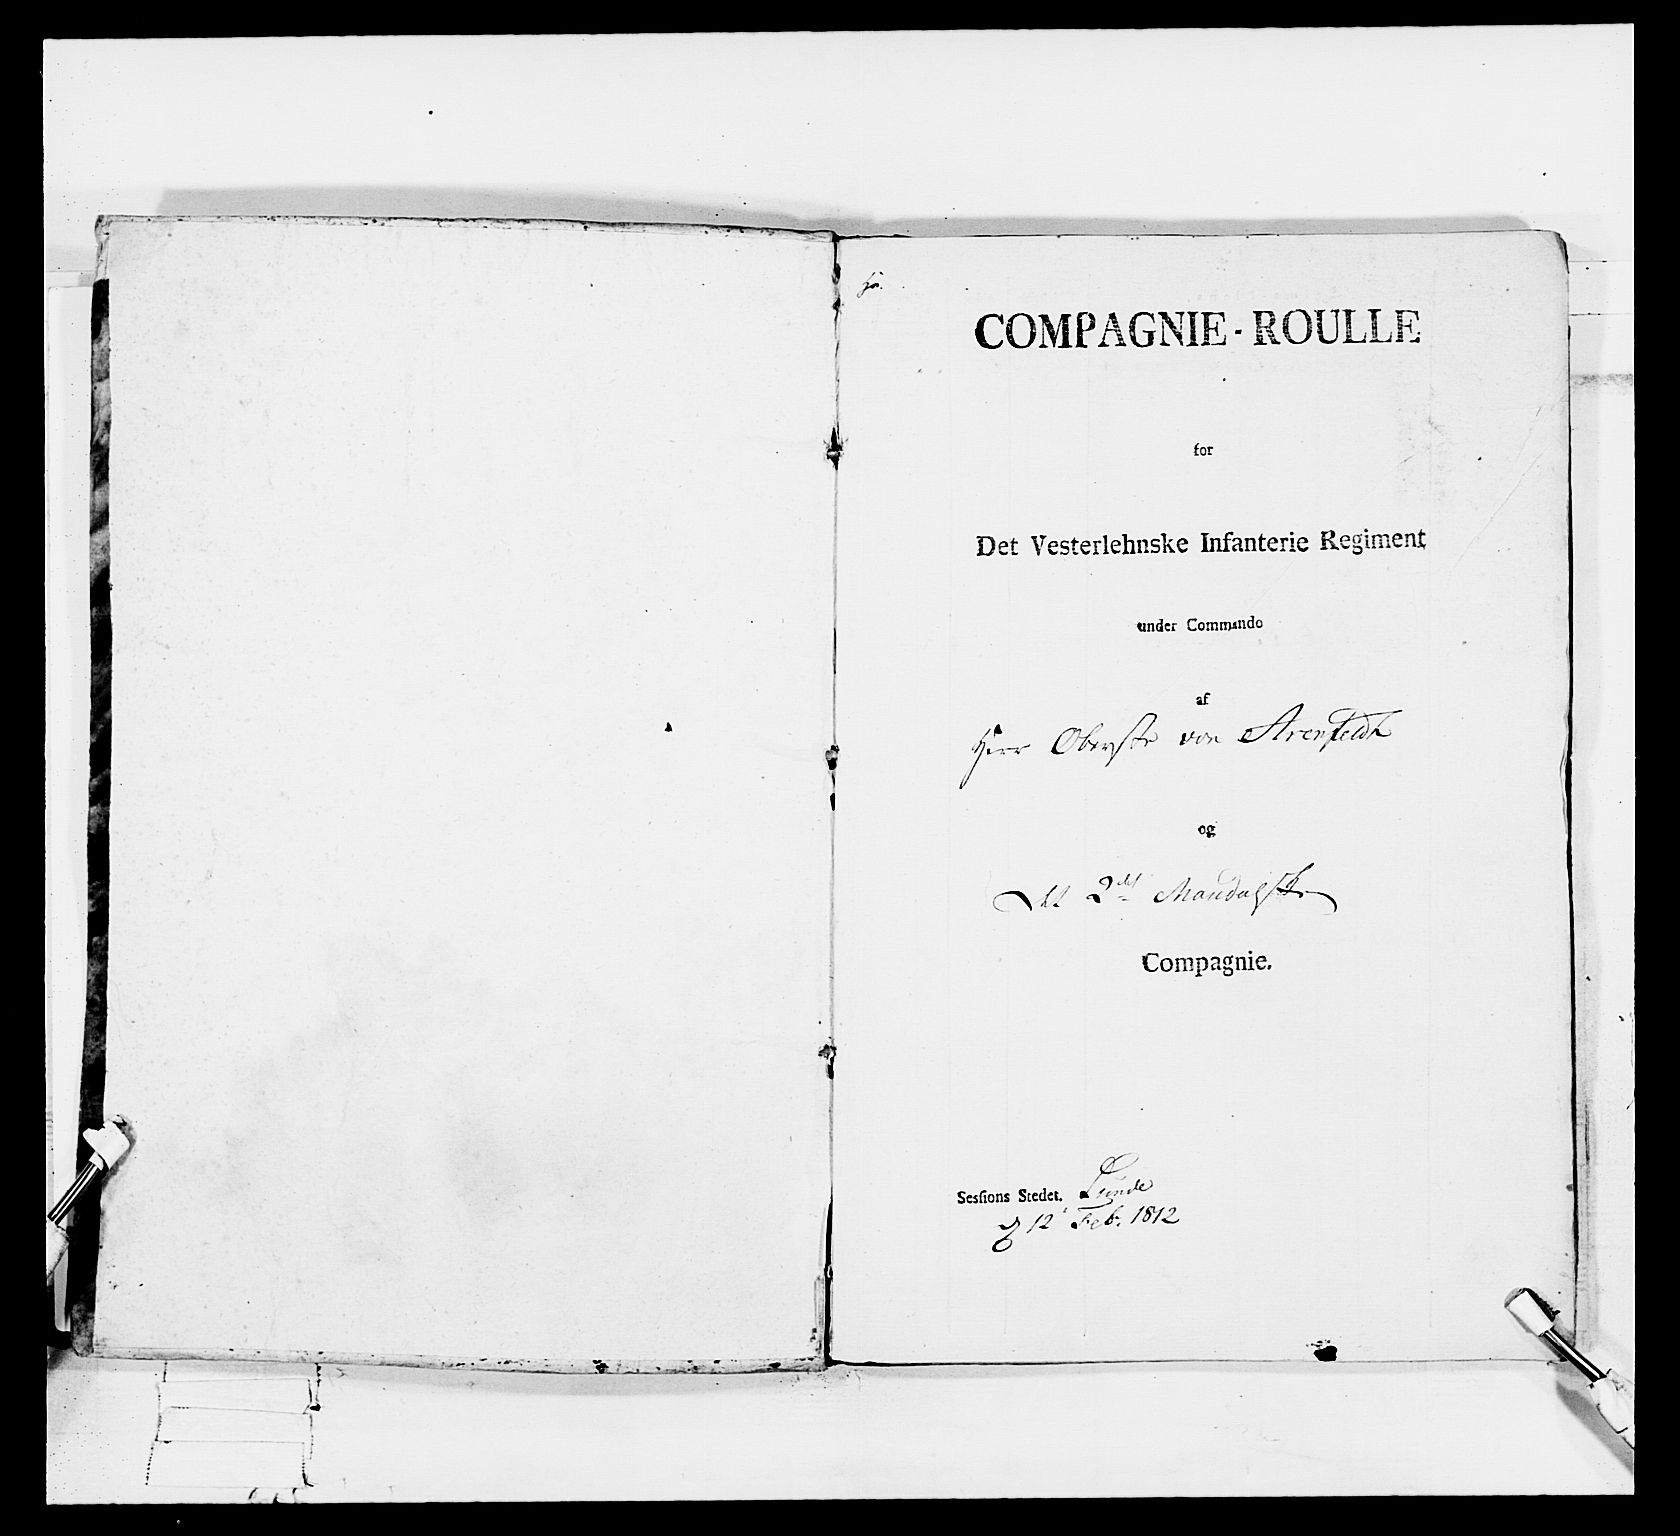 COMPAGNIE-ROULLE
for
Det Vesterlehnske Infanterie Regiment
under Commando
af
Herr Oberste von Arenfeldt
og
det 2det Mandalske
Compagnie.
Sesſions Stedet. Lunde
d 12t Feb. 1812